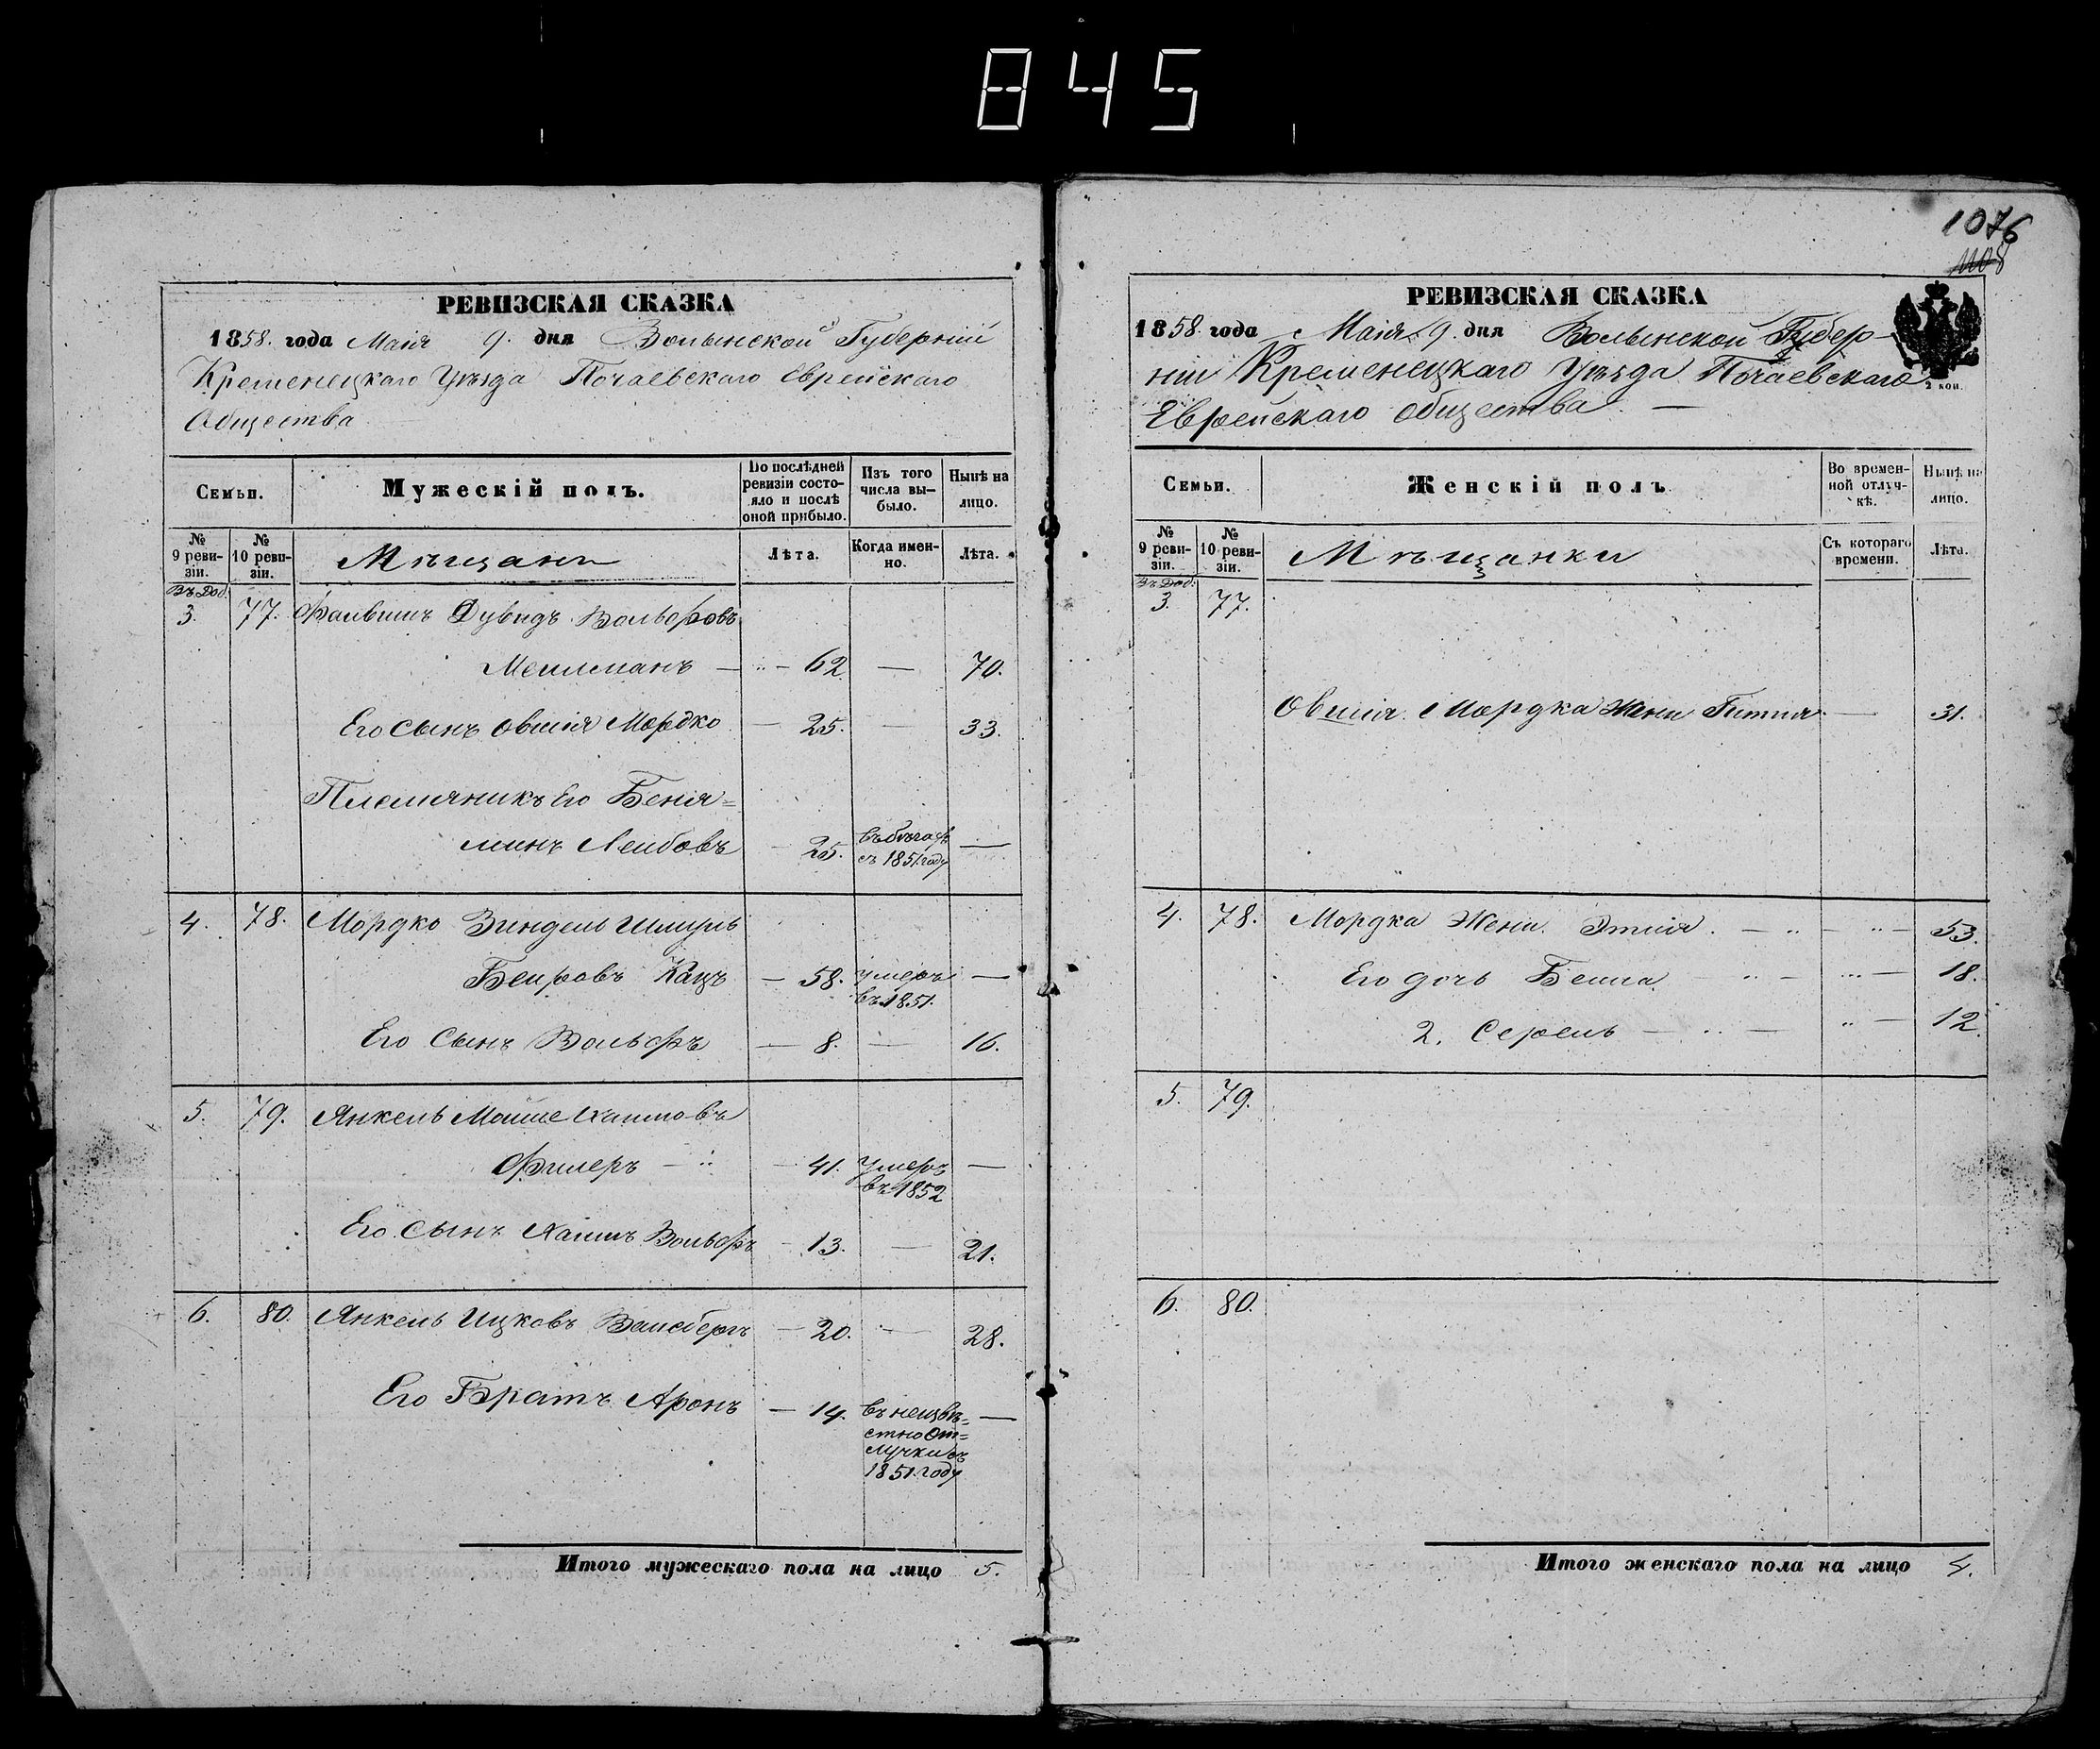 845
РЕВИЗСКАЯ СКАЗКА
1858. года Маія 9. дня Волынской Губерніи
Кременецкаго Уѣзда Почаевскаго Еврейскаго
Общества
Семьи.
Мужескій полъ.
По послѣдней ревизіи состояло и послѣ оной прибыло.
Изъ того числа вы-было.
Нынѣ на лицо.
№ 9 реви-зіи.
№ 10 реви-зіи.
Мѣщане
Лѣта.
Когда имен-но.
Лѣта.
Въ Доб.
3. 77. Файвишъ Дувидъ Вольфовъ
Мейлманъ — 62 — 70.
Его сынъ Овшія Мордко — 25. — 33.
Племянникъ Его Бенія=
минъ Лейбовъ — 25. въ бѣгахъ съ 1851. году —
4. 78. Мордко Зиндель Шмуль
Беировъ Кацъ — 58. умеръ въ 1851. —
Его Сынъ Вольфъ — 8. — 16.
5. 79. Янкель Мойше Хаимовъ
Филеръ — 41. умеръ въ 1852 —
Его Сынъ Хаимъ Вольфъ — 13. — 21.
6. 80. Янкель Ицковъ Вейсбергъ — 20. — 28.
Его Братъ Аронъ — 14. въ неизвѣ=
стно От=
лучки съ
1851. году —
Итого мужескаго пола на лицо 5.
1076
1108
РЕВИЗСКАЯ СКАЗКА
1858. года Маія 9. дня Волынской Губер-
ніи Кременецкаго Уѣзда Почаевскаго
2 коп.
Еврейскаго общества. —
Семьи.
Женскій полъ
Во времен-ной отлуч-кѣ.
Нынѣ на лицо.
№ 9 реви-зіи.
№ 10 реви-зіи.
Мѣщанки
Съ котораго времени.
Лѣта.
Въ Доб.
3. 77.
Овшія Мордка Жена Гитля — 31.
4. 78. Мордка Жена Этля — 53.
Его дочь Бейла — 18.
2. Серель — 12.
5. 79.
6. 80.
Итого женскаго пола на лицо 4.